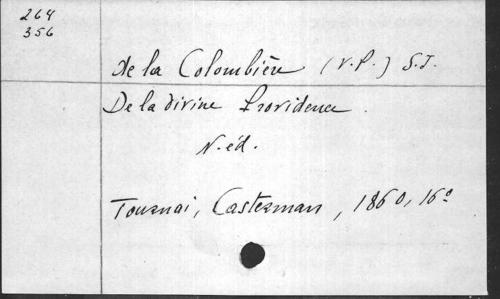 264
356
de la Colombière (V.P.) S.J.
De la divine Providence.
N. éd.
Tournai, Casterman, 1860, 16°